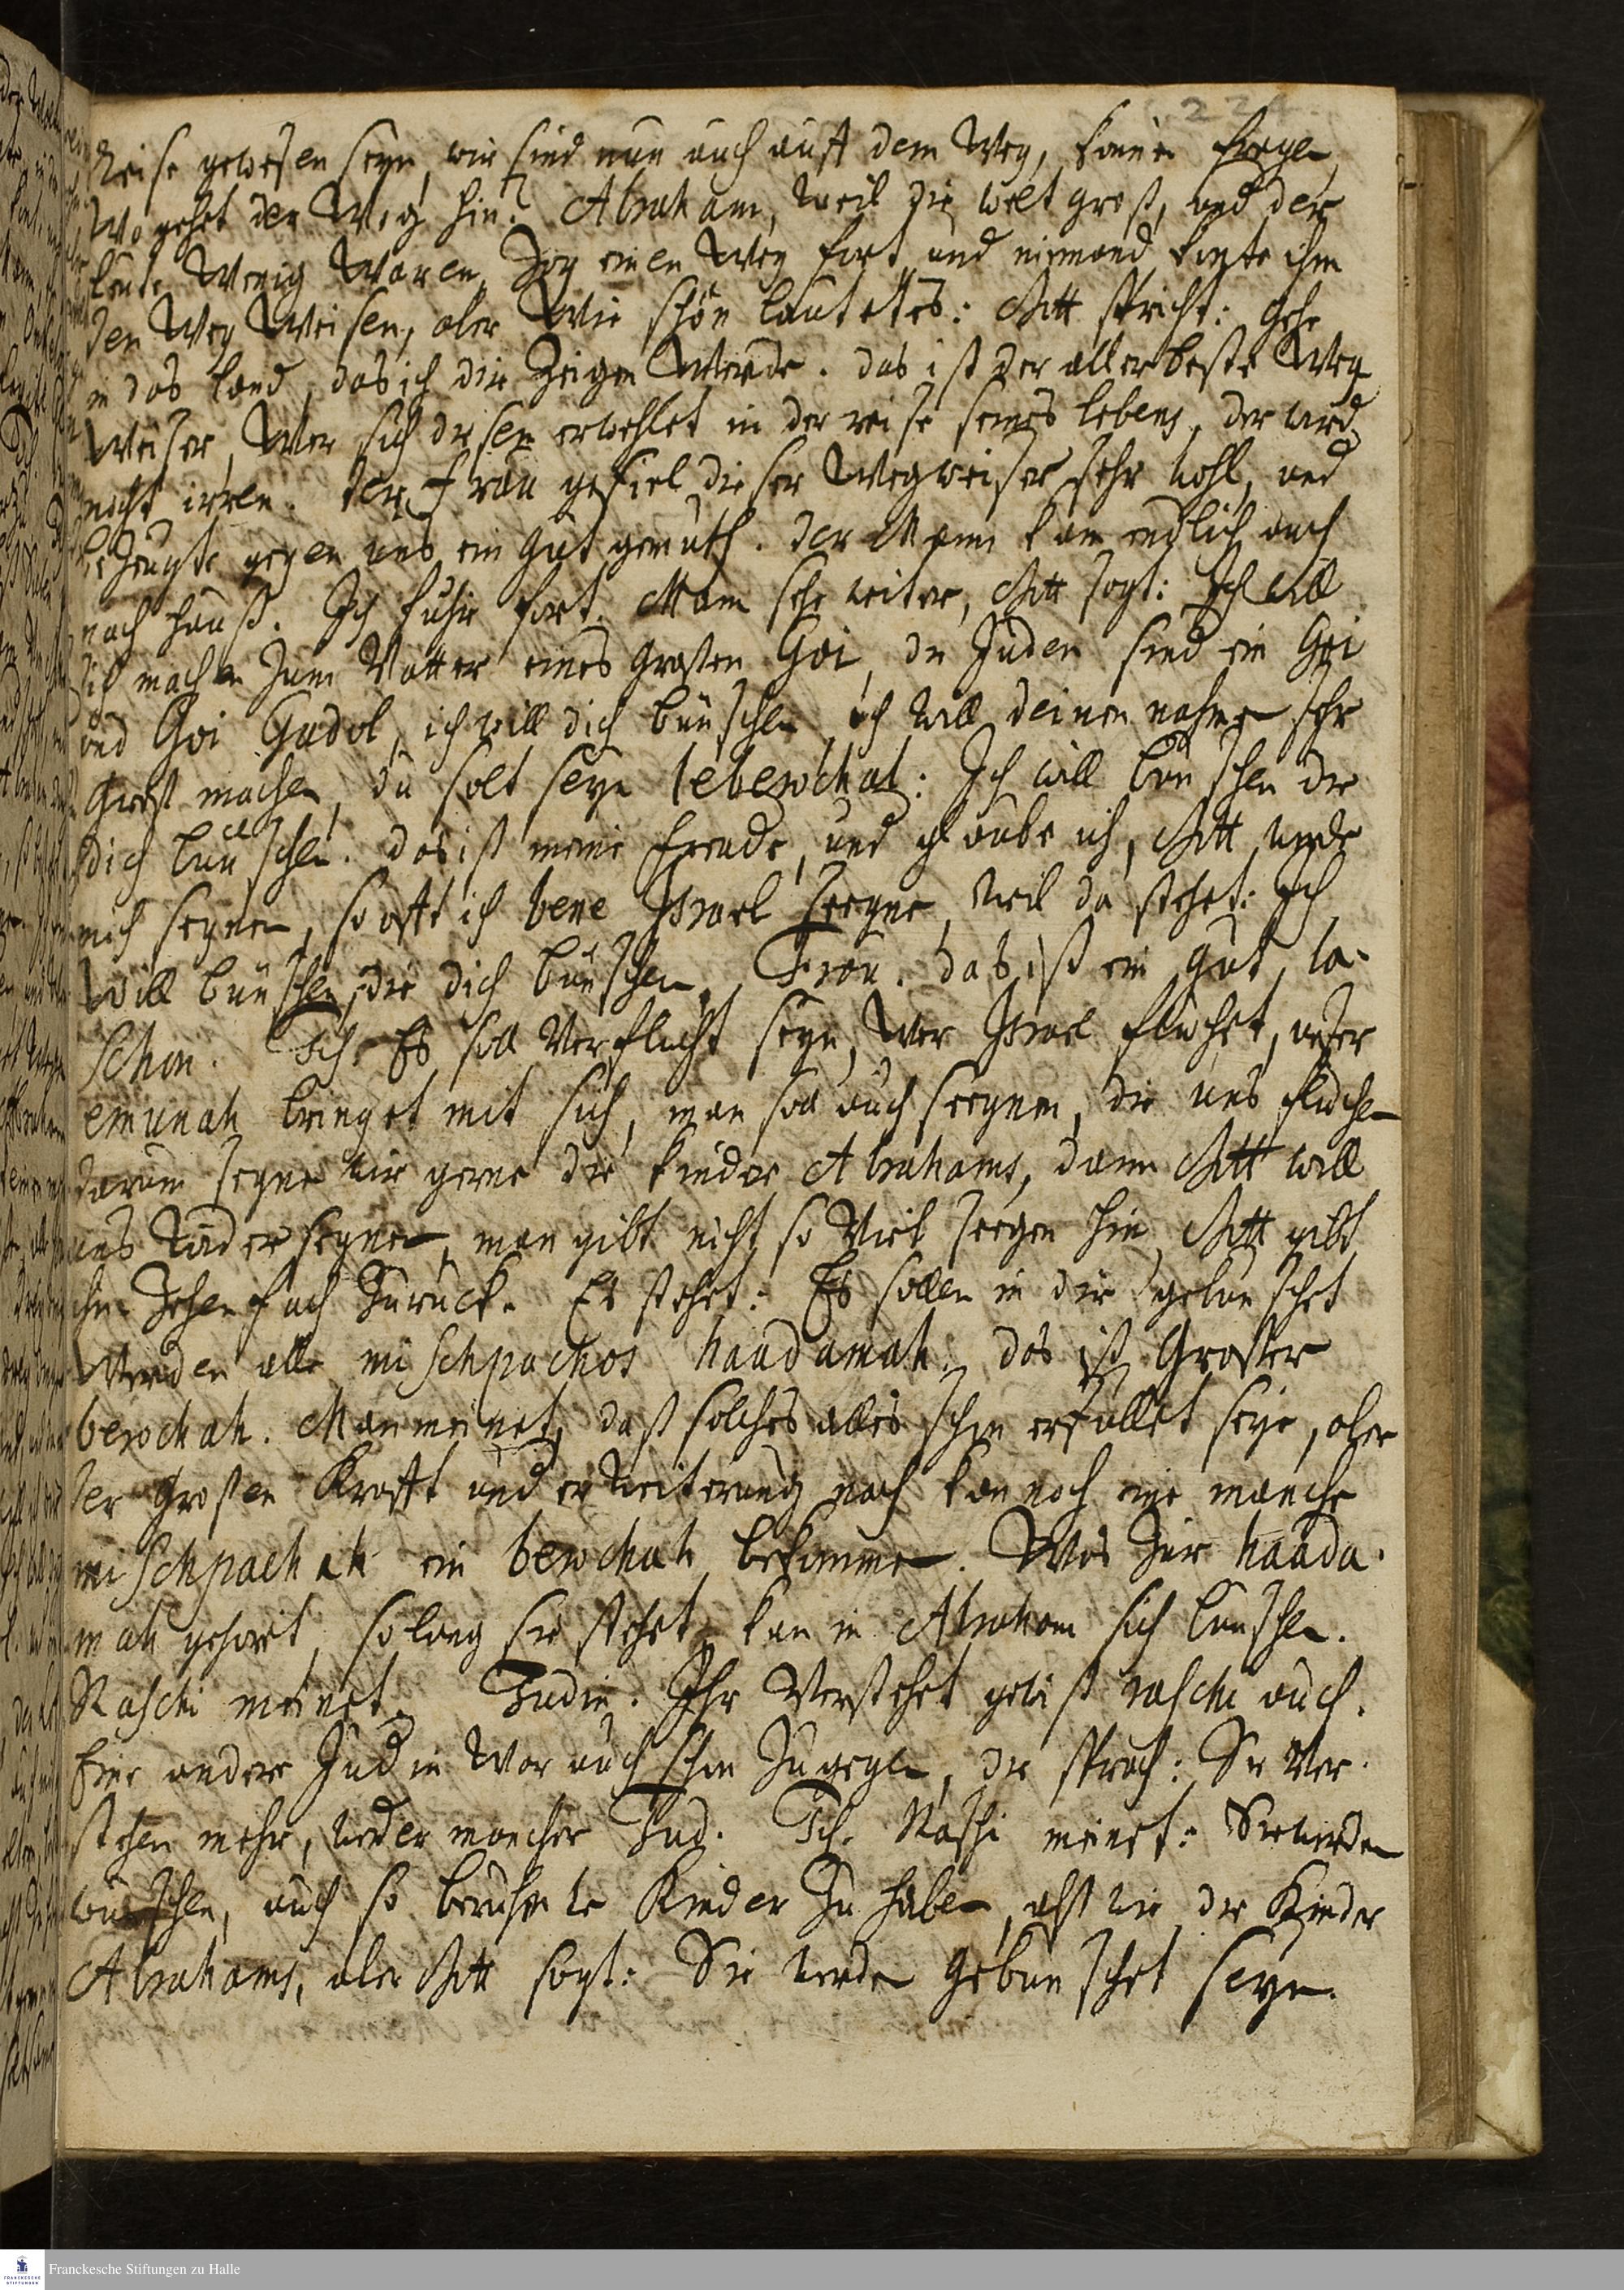 224.
Reise gewesen seyn, wir sind nun auch auff dem Weg, können fragen,
Wo gehet der Weg hin? Abraham, weil die welt groß, und der
leute Wenig Waren, Zog einen Weg fort, und niemand konte ihm
den Weg Weisen, aber Wie schön lautetes: Gott spricht: gehe
in das land, das ich dir Zeigen Werde. das ist der allerbeste Weg
Weiser, Wer sich diesen erwehlet in der reise seines lebens, der wird
nicht irren. der Frau gefiel dieser Wegweiser sehr wohl, und
bezeugte gegen uns ein gut gemüth. der Mann kam endlich auch
nach hauß. Ich fuhr fort. Mam sehe weiter, Gott sagt: Ich will
dich machen zum Vatter eines grosen Goi, die Juden sind ein Goi
und Goi Gadol, ich will dich bünschen ich will deinen nahmen sehr
groß machen, du solt seyn leberochat: Ich will bünschen die
dich bünschen. das ist meine freude, und glaube ich, Gott werde
mich segnen, so offt ich bene Israel seegne, weil da stehet: Ich
Will bünschen, die dich bünschen. Frau. das ist ein gut la-
schon. Ich. Es soll Verflucht seyn, Wer Israel fluchet, unser
emunah bringet mit sich, man soll auch seegnen, die uns fluchen
darum segne wir gerne die kinder Abrahams, dann Gott will
uns wider segnen, man gibt nicht so Viel seegen hin, Gott gibt
ihn Zehenfach Zurück. Es stehet: Es sollen in dir gebünschet
Werden alle mischpachos haadamah. das ist groser
berochah. Man meinet, daß solches alles schon erfüllet seye, aber
der grosen Krafft und erweiterung nach kan noch eine manche
mischpachah ein berochah bekommen. Was Zur haada-
mah gehört, solang sie stehet, kan in Abraham sich bünschen.
Raschi meinet. Judin. Ihr Verstehet gewiß raschi auch.
Eine andere Judin War auch schon Zugegen, die sprach: Sie Ver-
stehen mehr, weder mancher Jud. Ich. Raschi meinet: Sie werden
wünschen, auch so berühmte Kinder Zu haben, alß wie die Kinder
Abrahams, aber Gott sagt: Sie werden gebünschet seyn.
Franckesche Stiftungen zu Halle